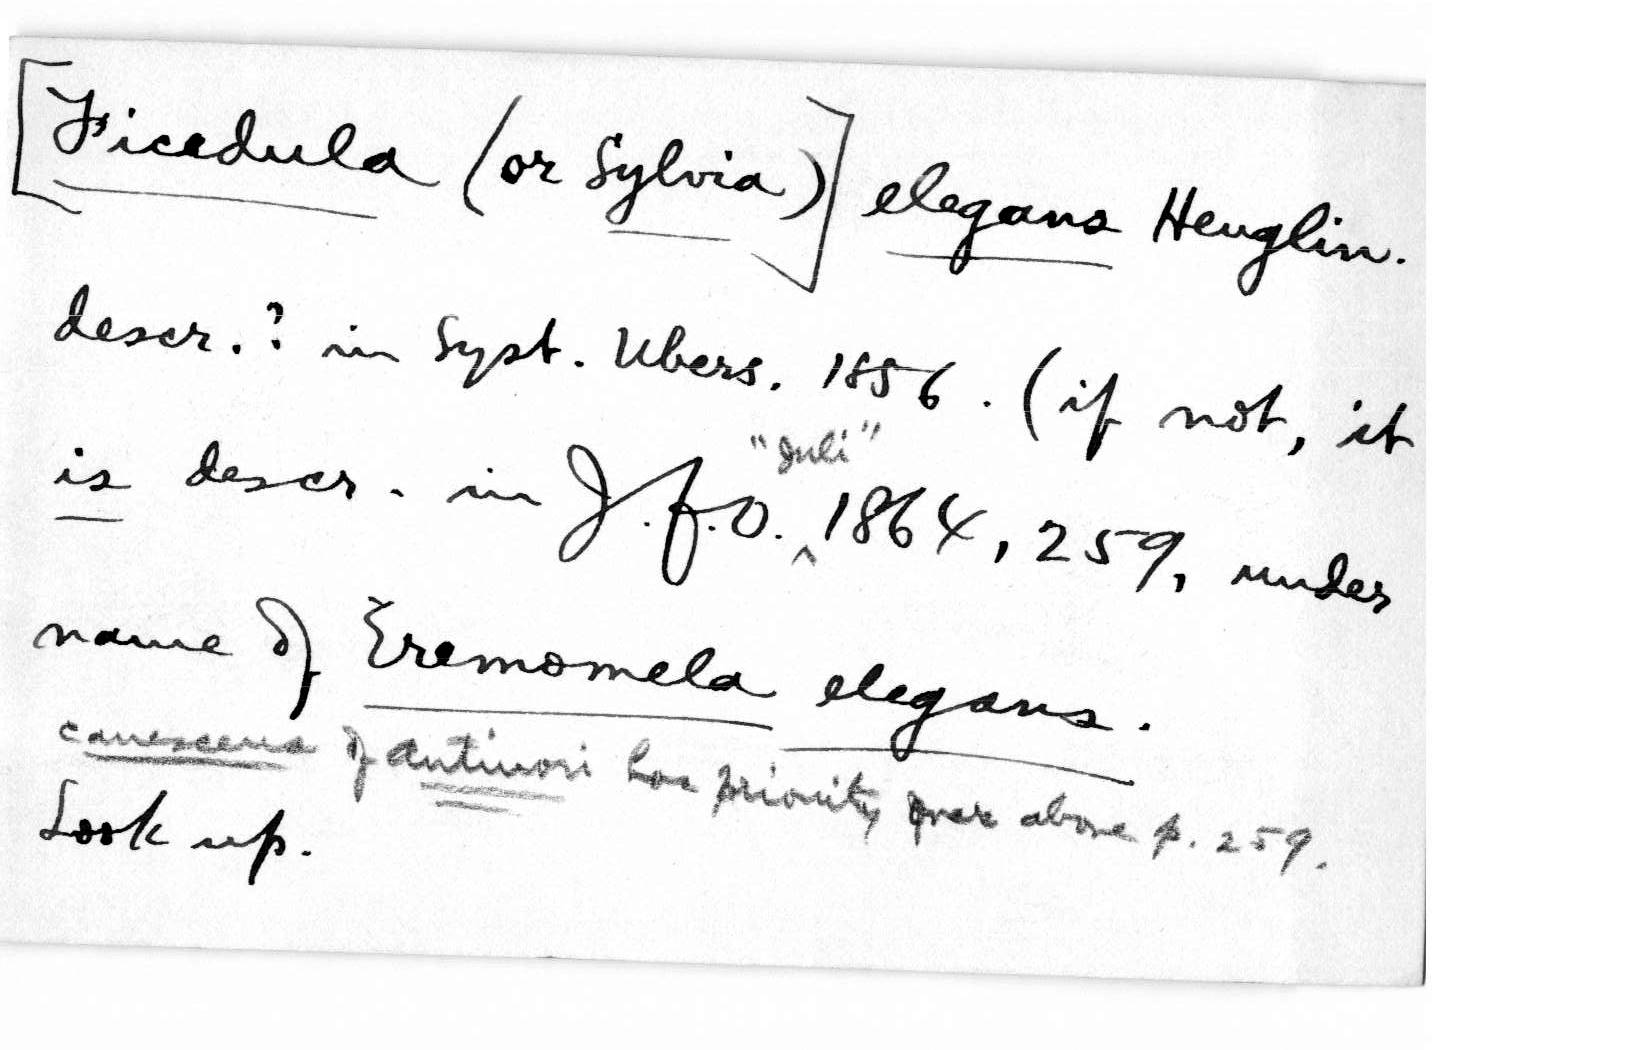 [Ficedula (or Sylvia)] elegans Heuglin.
descr.? in Syst. Ubers. 1856. (if not, it
"Juli"
is descr. in J.f.O. ^ 1864, 259, under
name of Eremomela elegans.
canescens of Antinori has priority over above p. 259.
Look up.